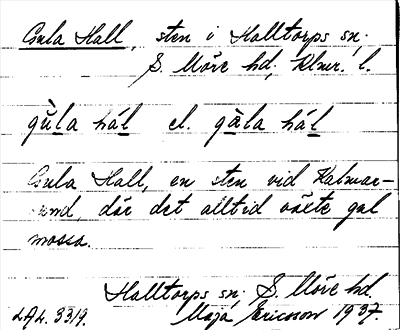 Gula Hall, sten i Halltorps sn.
S. Möre hd, Klmr. l.
gùla hál el. gàla hál
Gula Hall, en sten vid Kalmar-
sund, där det alltid växte gul
mossa.
Halltorps sn. S. Möre hd.
LAL. 3319. Maja Ericsson 1937.